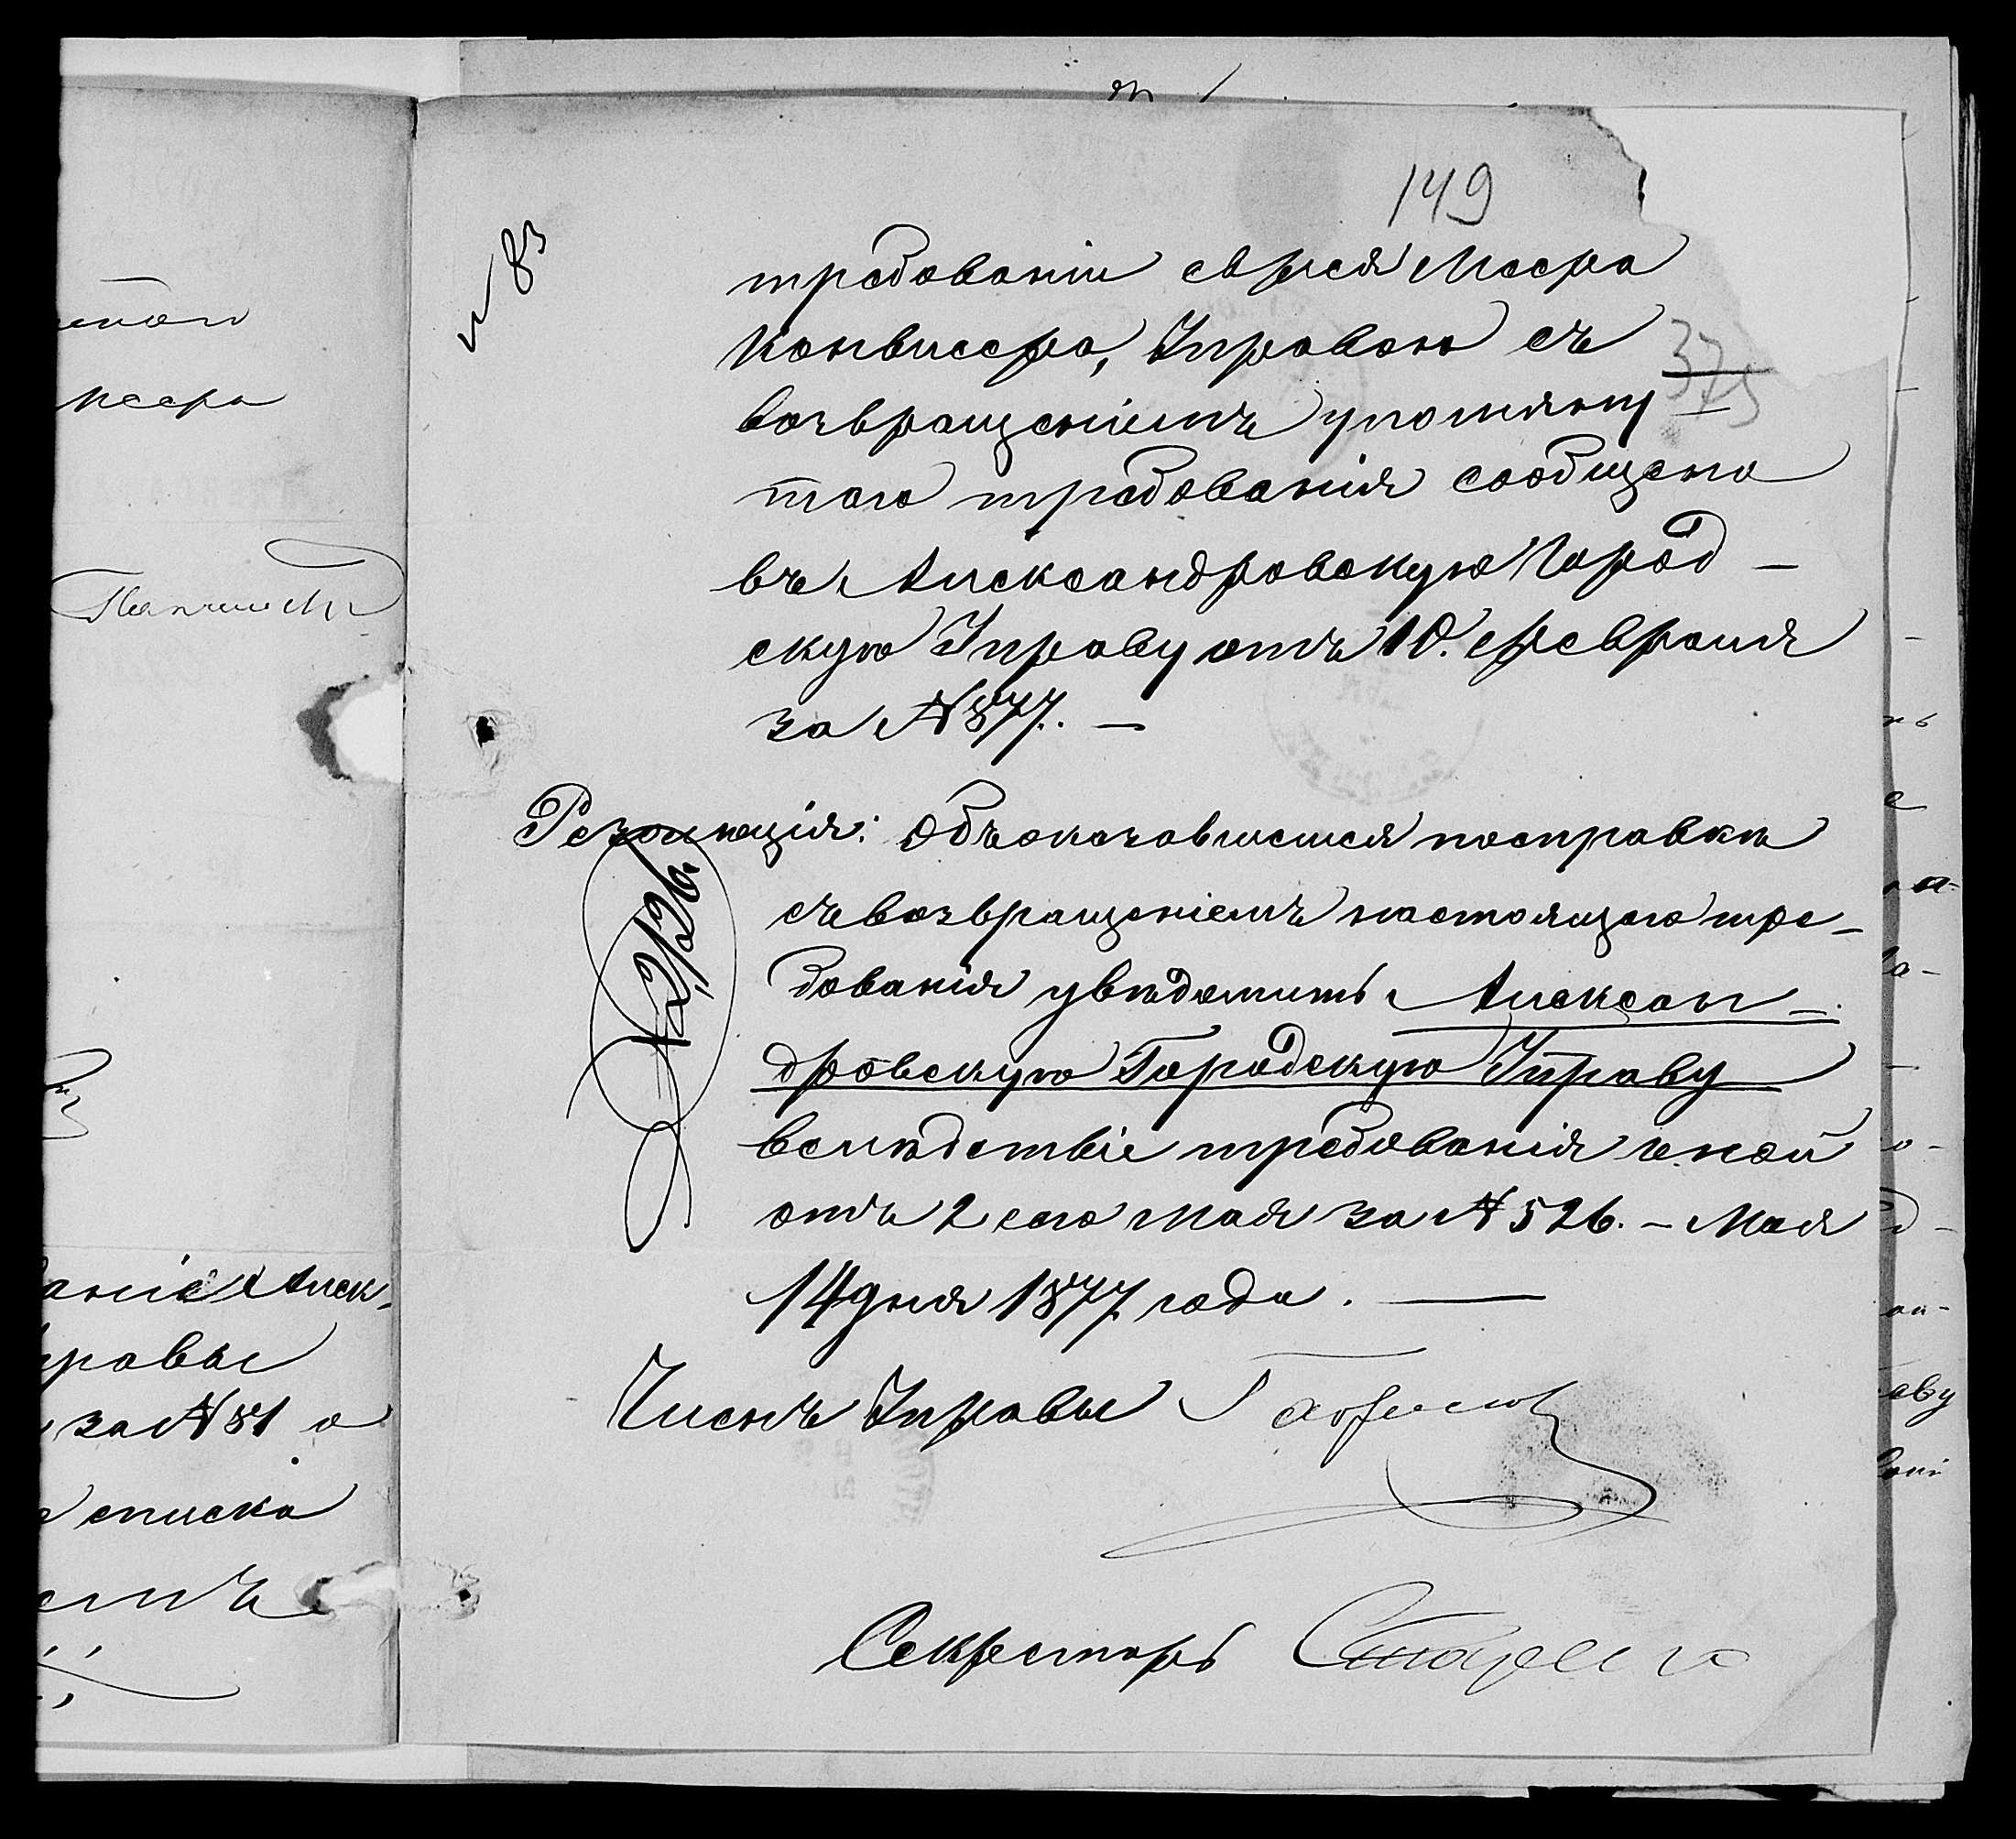 149
№ 83
требованіи еврея Меера
Конвиссера, Управою съ
375
возвращеніемъ упомяну-
таго требованія сообщено
въ Александровскую Город-
скую Управу отъ 10. февраля
за № 877. —
Резолюція: Объ оказавшемся по справкѣ
съ возвращеніемъ настоящаго тре-
бованія увѣдомить Алексан-
дровскую Городскую Управу
вслѣдствіе требованія ея
отъ 2 сего мая за № 526. — Мая
14 дня 1877 года. —
№ 2226.
Членъ Управы
Секретарь
аніе Алек-
равы
за № 81 о
списка